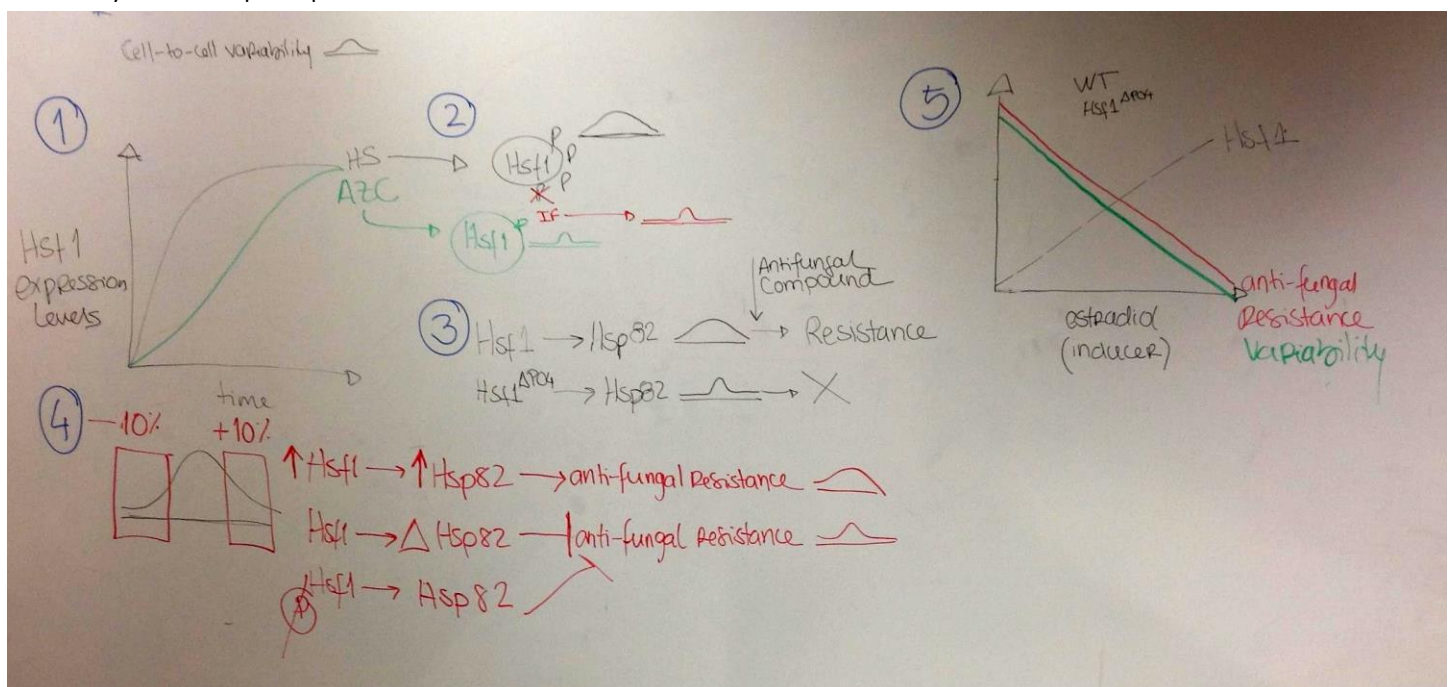 Cell-to-cell vaRiability
1
Hsf1
expRession
levels
HS
AZC
time
2
Hsf1
P
P
P
P
IF
Hsf1
P
3
Hsf1 → Hsp82 → Resistance
Antifungal
Compound
Hsf1ΔPO4 → Hsp82 → X
4
-10% +10%
↑Hsf1 → ↑Hsp82 → anti-fungal Resistance
Hsf1 → Δ Hsp82 ⊣ anti-fungal Resistance
P
Hsf1 → Hsp82
5
WT
Hsf1ΔPO4
Hsf1
estradiol
(induceR)
anti-fungal
Resistance
VaRiability